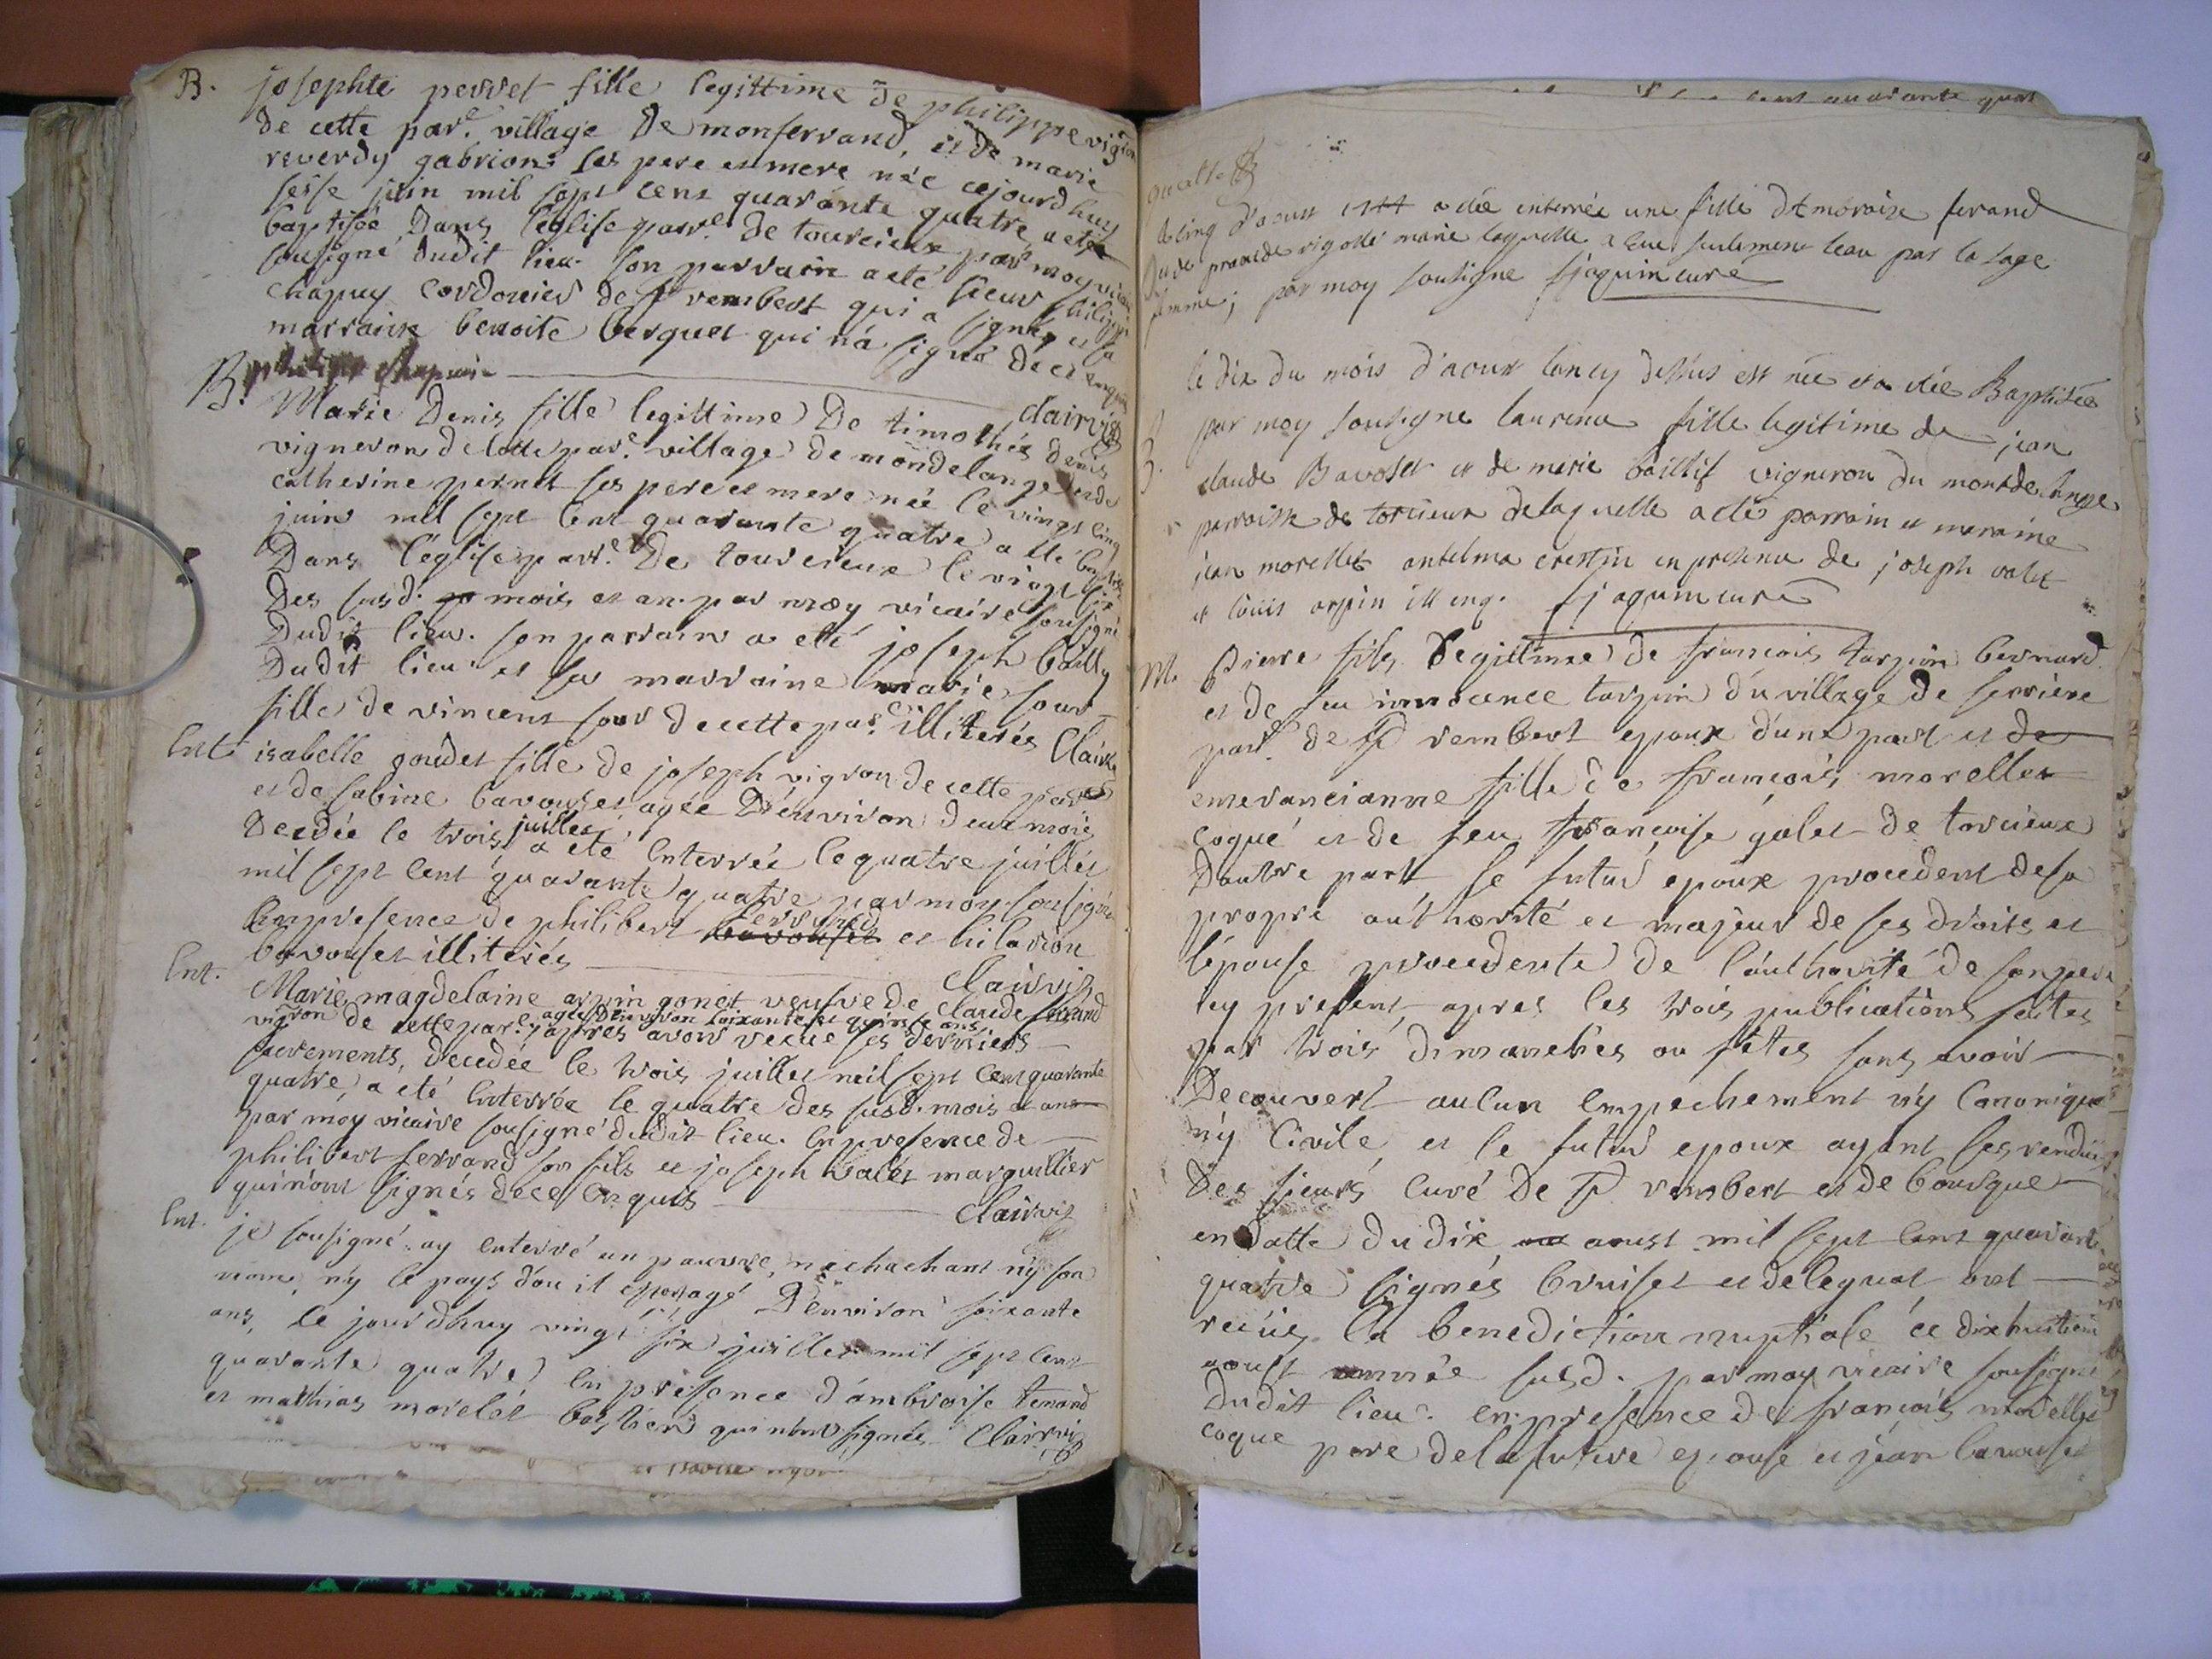 B. josephte perret fille legittime de philippe vigron
de cette par.e village de monferrand, et de marie
reverdy gabrion ses pere et mere née cejourdhuy
sesse juin mil sept cent quarante quatre a eté
baptisée dans l'eglise parr.e de tourcieux par moy vicaire
sousigné dudit lieu. son parrain a eté sieur philippe
chapuy cordonier de st rembert qui a signé, et sa
marraine benoite berguet qui n'a signé de ce enquis
philippe chapuis clairvis
B. Marie Denis fille legittime De timothée denis
vigneron de cette par.e village de mondelange et de
catherine pernet ses pere et mere née le vingt cinq
juin mil sept cent quarante quatre a eté baptisée
Dans l'eglise parr.e De tourcieux le vingt six
Des susd. mois et an. par moy vicaire sousigné
Dudit lieu. son parrain a eté joseph bailly
Dudit lieu et sa marraine marie four
fille de vincent four de cette par.e illiterés Clairvis
Ent. isabelle goudet fille de joseph vigron de cette par.e
et de sabine bavouset agée D'environ deux mois
Decedée le trois juillet a eté Enterrée le quatre juillet
mil sept cent quarante quatre par moy sousigné
En presence de philibert ferrand bavouset et hilarion
bavouset illiterés Clairvis
Ent. Marie magdelaine arpin gonet veufve de Claude ferrand
vigron de cette par.e agée D'environ soixante et quinse ans, apres avoir receue ses derniers
sacrements, decedée le trois juillet mil sept cent quarante
quatre a eté Enterrée le quatre des susd. mois et an
par moy vicaire sousigné dudit lieu. En presence de
philibert ferrand son fils et joseph valet marguillier
qui n'ont signés de ce Enquis Clairvis
Ent. je sousigné ay enterré un pauvre, ne sachant n'y son
nom, n'y le pays d'ou il est agé D'environ soixante
ans, le jourdhuy vingt six juillet mil sept cent
quarante quatre En presence d'ambroise tenand
et mathias morelét bastien qui n'ont signés Clairvis
le cinq d'aoust 1744 a été enterrée une fille d'Amboise ferand
et de praxede rigollet marié laquelle a eue seulement leau par la sage
femme; par moy sousigne fjaquin curé
le dix du mois d'aoust lancy dessus est née et a étée Baptisée
B. par moy sousigne laurence fille legitime de jean
claude Bavoset et de marie baillif vigneron du mondelange
parroisse de torcieux delaquelle a été parrain et maraine
jean morellet anthelma crestin en presence de joseph valet
et louis arpin ill enq. fjaquin curé
M. Pierre fils Legittime de françois tarpin bernard
et de feu innocence tarpin du village de serriere
parr.e de St rembert epoux d'une part et de
emerancianne fille de françois morellet
coqué et de feu françoise galet de torcieux
D'autre part, le futur epoux procedent de sa
propre authorité et majeur de ses droits et
l'epouse procedente de l'authorité de son pere
icy present, apres les trois publications faites
par trois dimanches ou fêtes sans avoir
Decouvert aucun Empechement n'y Canonique
n'y Civile, et le futur epoux ayant ses rendües
Des sieurs curé de St rembert et de
en Datte du dix aoust mil sept cent quarante
quatre signés bruiset et ont
reçüs la benediction nuptiale ce dix huitieme
aoust année susd. par moy vicaire sousigné
Dudit lieu. en presence de françois morellet
coque pere de la future epouse et jean bavouset